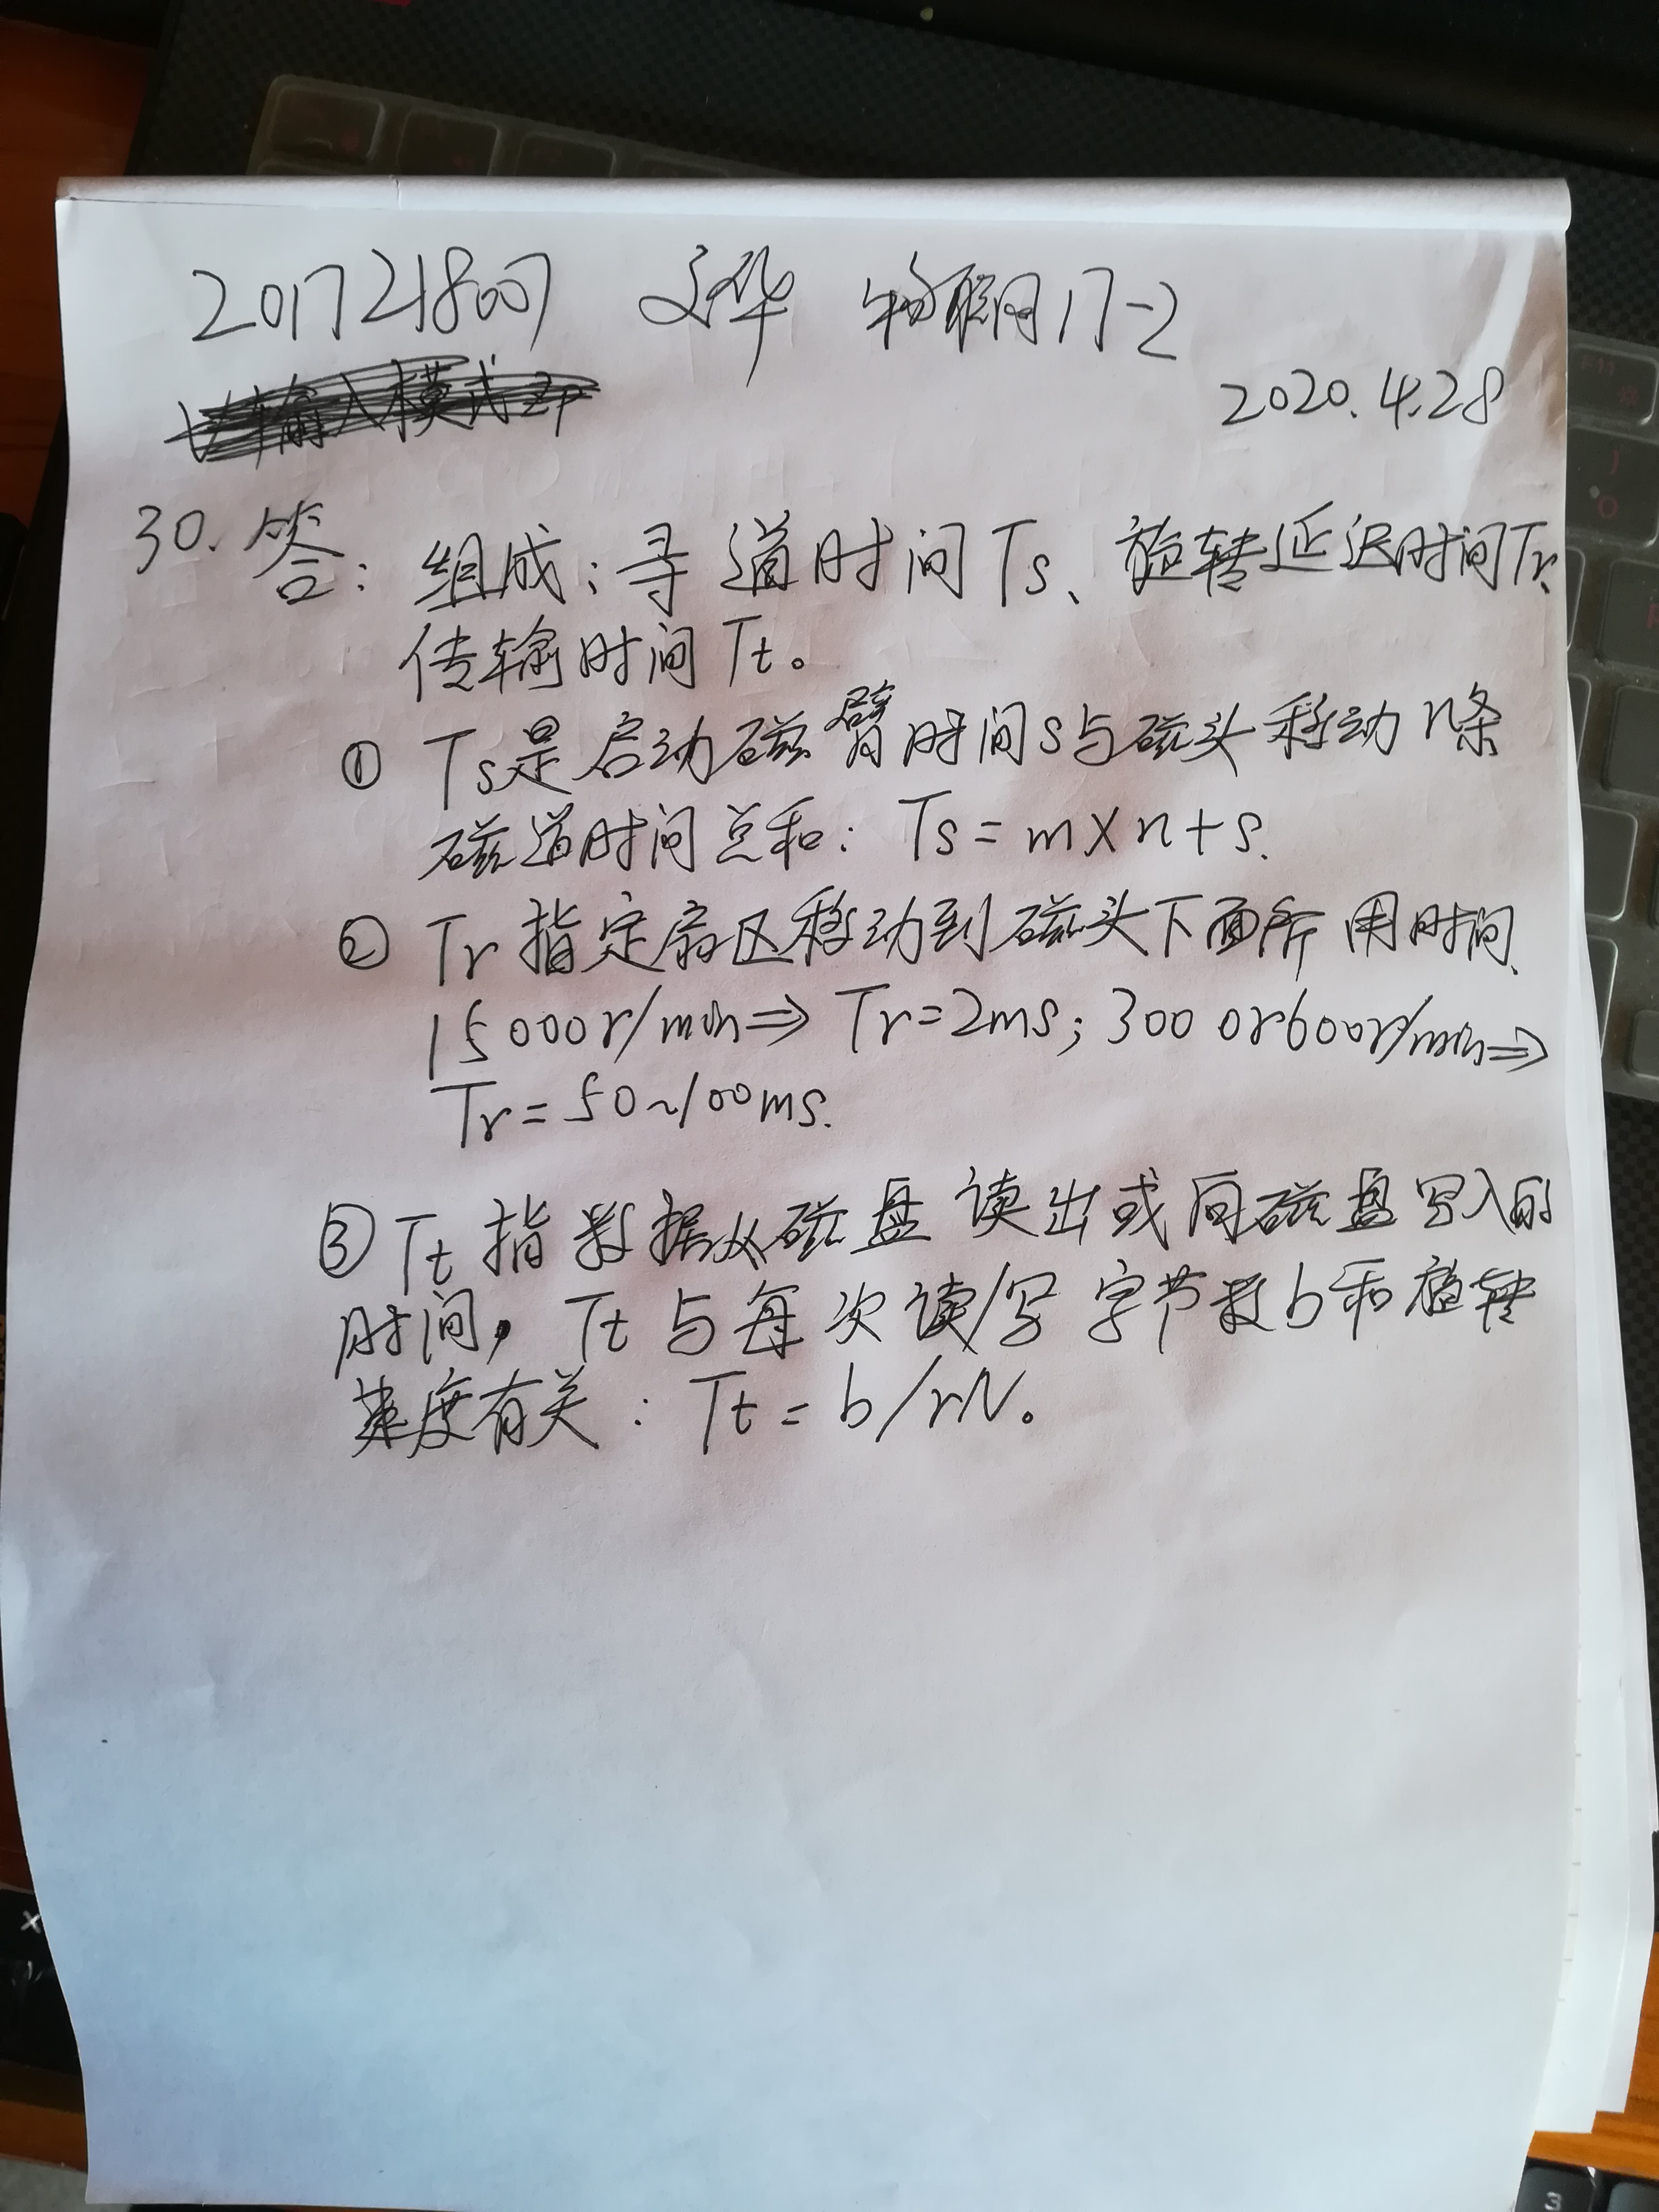 201721807 文华 物联网17-2
2020.4.28
30.答：组成：寻道时间Ts、旋转延迟时间Tr、
传输时间Tt。
① Ts是启动磁臂时间s与磁头移动n条
磁道时间总和：Ts=m×n+s.
② Tr指定扇区移动到磁头下面所用时间、
15000r/min⇒Tr=2ms；300 or 600r/min⇒
Tr=50~100ms.
③ Tt指数据从磁盘读出或向磁盘写入的
时间，Tt与每次读/写字节数b和旋转
速度有关：Tt=b/rN。